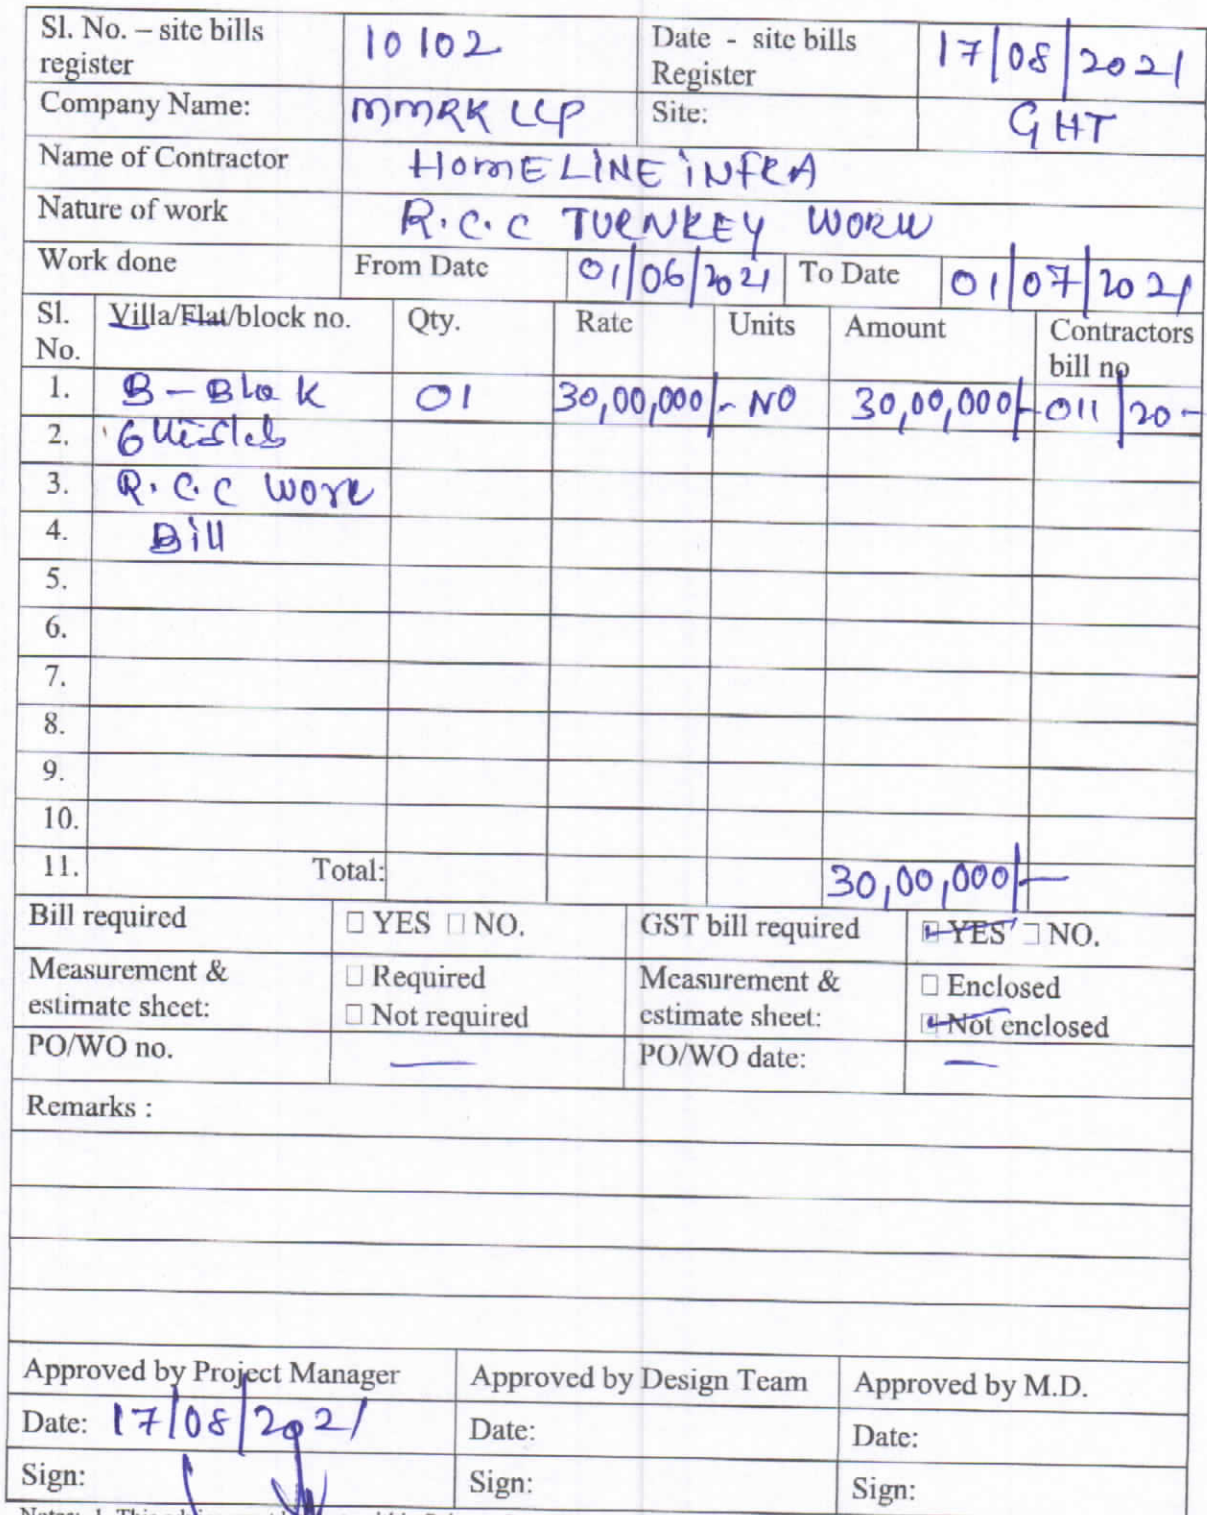 Sl. No. – site bills register 10102 Date - site bills Register 17/08/2021
Company Name: MMRK LLP Site: GHT
Name of Contractor HOMELINE INFRA
Nature of work R.C.C TURNKEY WORK
Work done From Date 01/06/2021 To Date 01/07/2021
Sl. No. Villa/Flat/block no. Qty. Rate Units Amount Contractors bill no
1. B-Block 01 30,00,000/- NO 30,00,000/- 011/20-
2. 6
3. R.C.C Work
4. Bill
5.
6.
7.
8.
9.
10.
11. Total: 30,00,000/-
Bill required □ YES □ NO. GST bill required □ YES □ NO.
Measurement & estimate sheet: □ Required □ Not required Measurement & estimate sheet: □ Enclosed □ Not enclosed
PO/WO no. — PO/WO date: —
Remarks :
Approved by Project Manager Approved by Design Team Approved by M.D.
Date: 17/08/2021 Date: Date:
Sign: Sign: Sign: